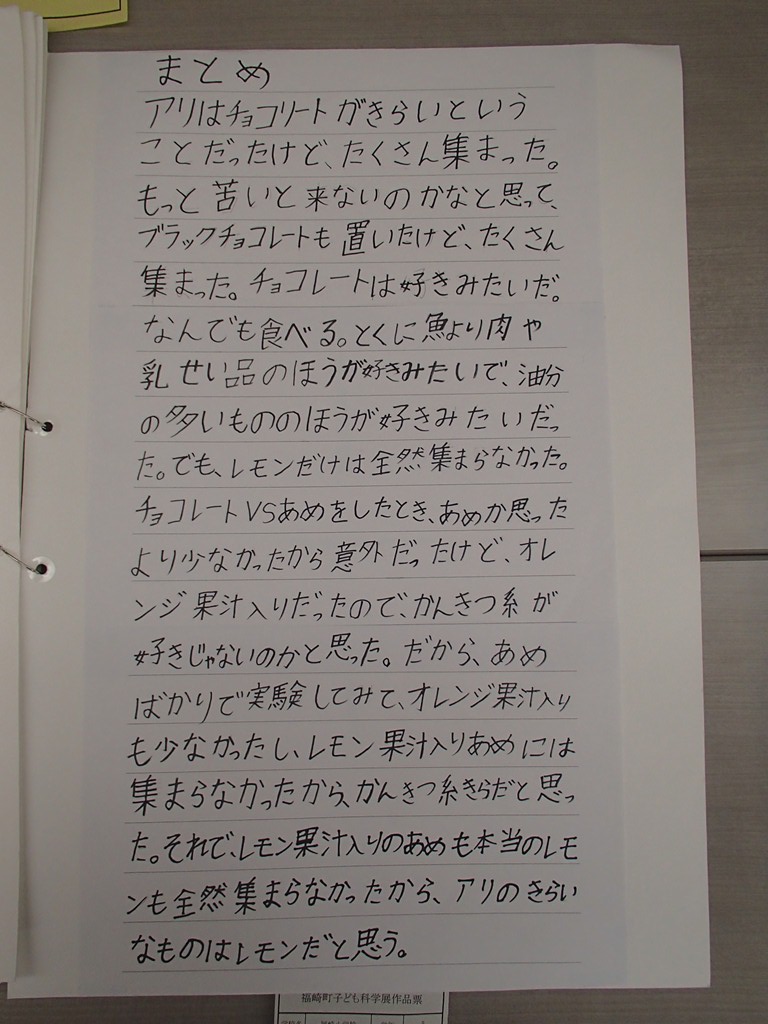 まとめ
アリはチョコリートがきらいという
ことだったけど、たくさん集まった。
もっと苦いと来ないのかなと思って、
ブラックチョコレートも置いたけど、たくさん
集まった。チョコレートは好きみたいだ。
なんでも食べる。とくに魚より肉や
乳せい品のほうが好きみたいで、油分
の多いもののほうが好きみたいだっ
た。でも、レモンだけは全然集まらなかった。
チョコレートVSあめをしたとき、あめが思った
より少なかったから意外だったけど、オレ
ンジ果汁入りだったので、かんきつ糸が
好きじゃないのかと思った。だから、あめ
ばかりで実験してみて、オレンジ果汁入り
も少なかったし、レモン果汁入りあめには
集まらなかったから、かんきつ糸きらだと思っ
た。それで、レモン果汁入りのあめも本当のレモ
ンも全然集まらなかったから、アリのきらい
なものはレモンだと思う。
福崎町子ども科学展作品票